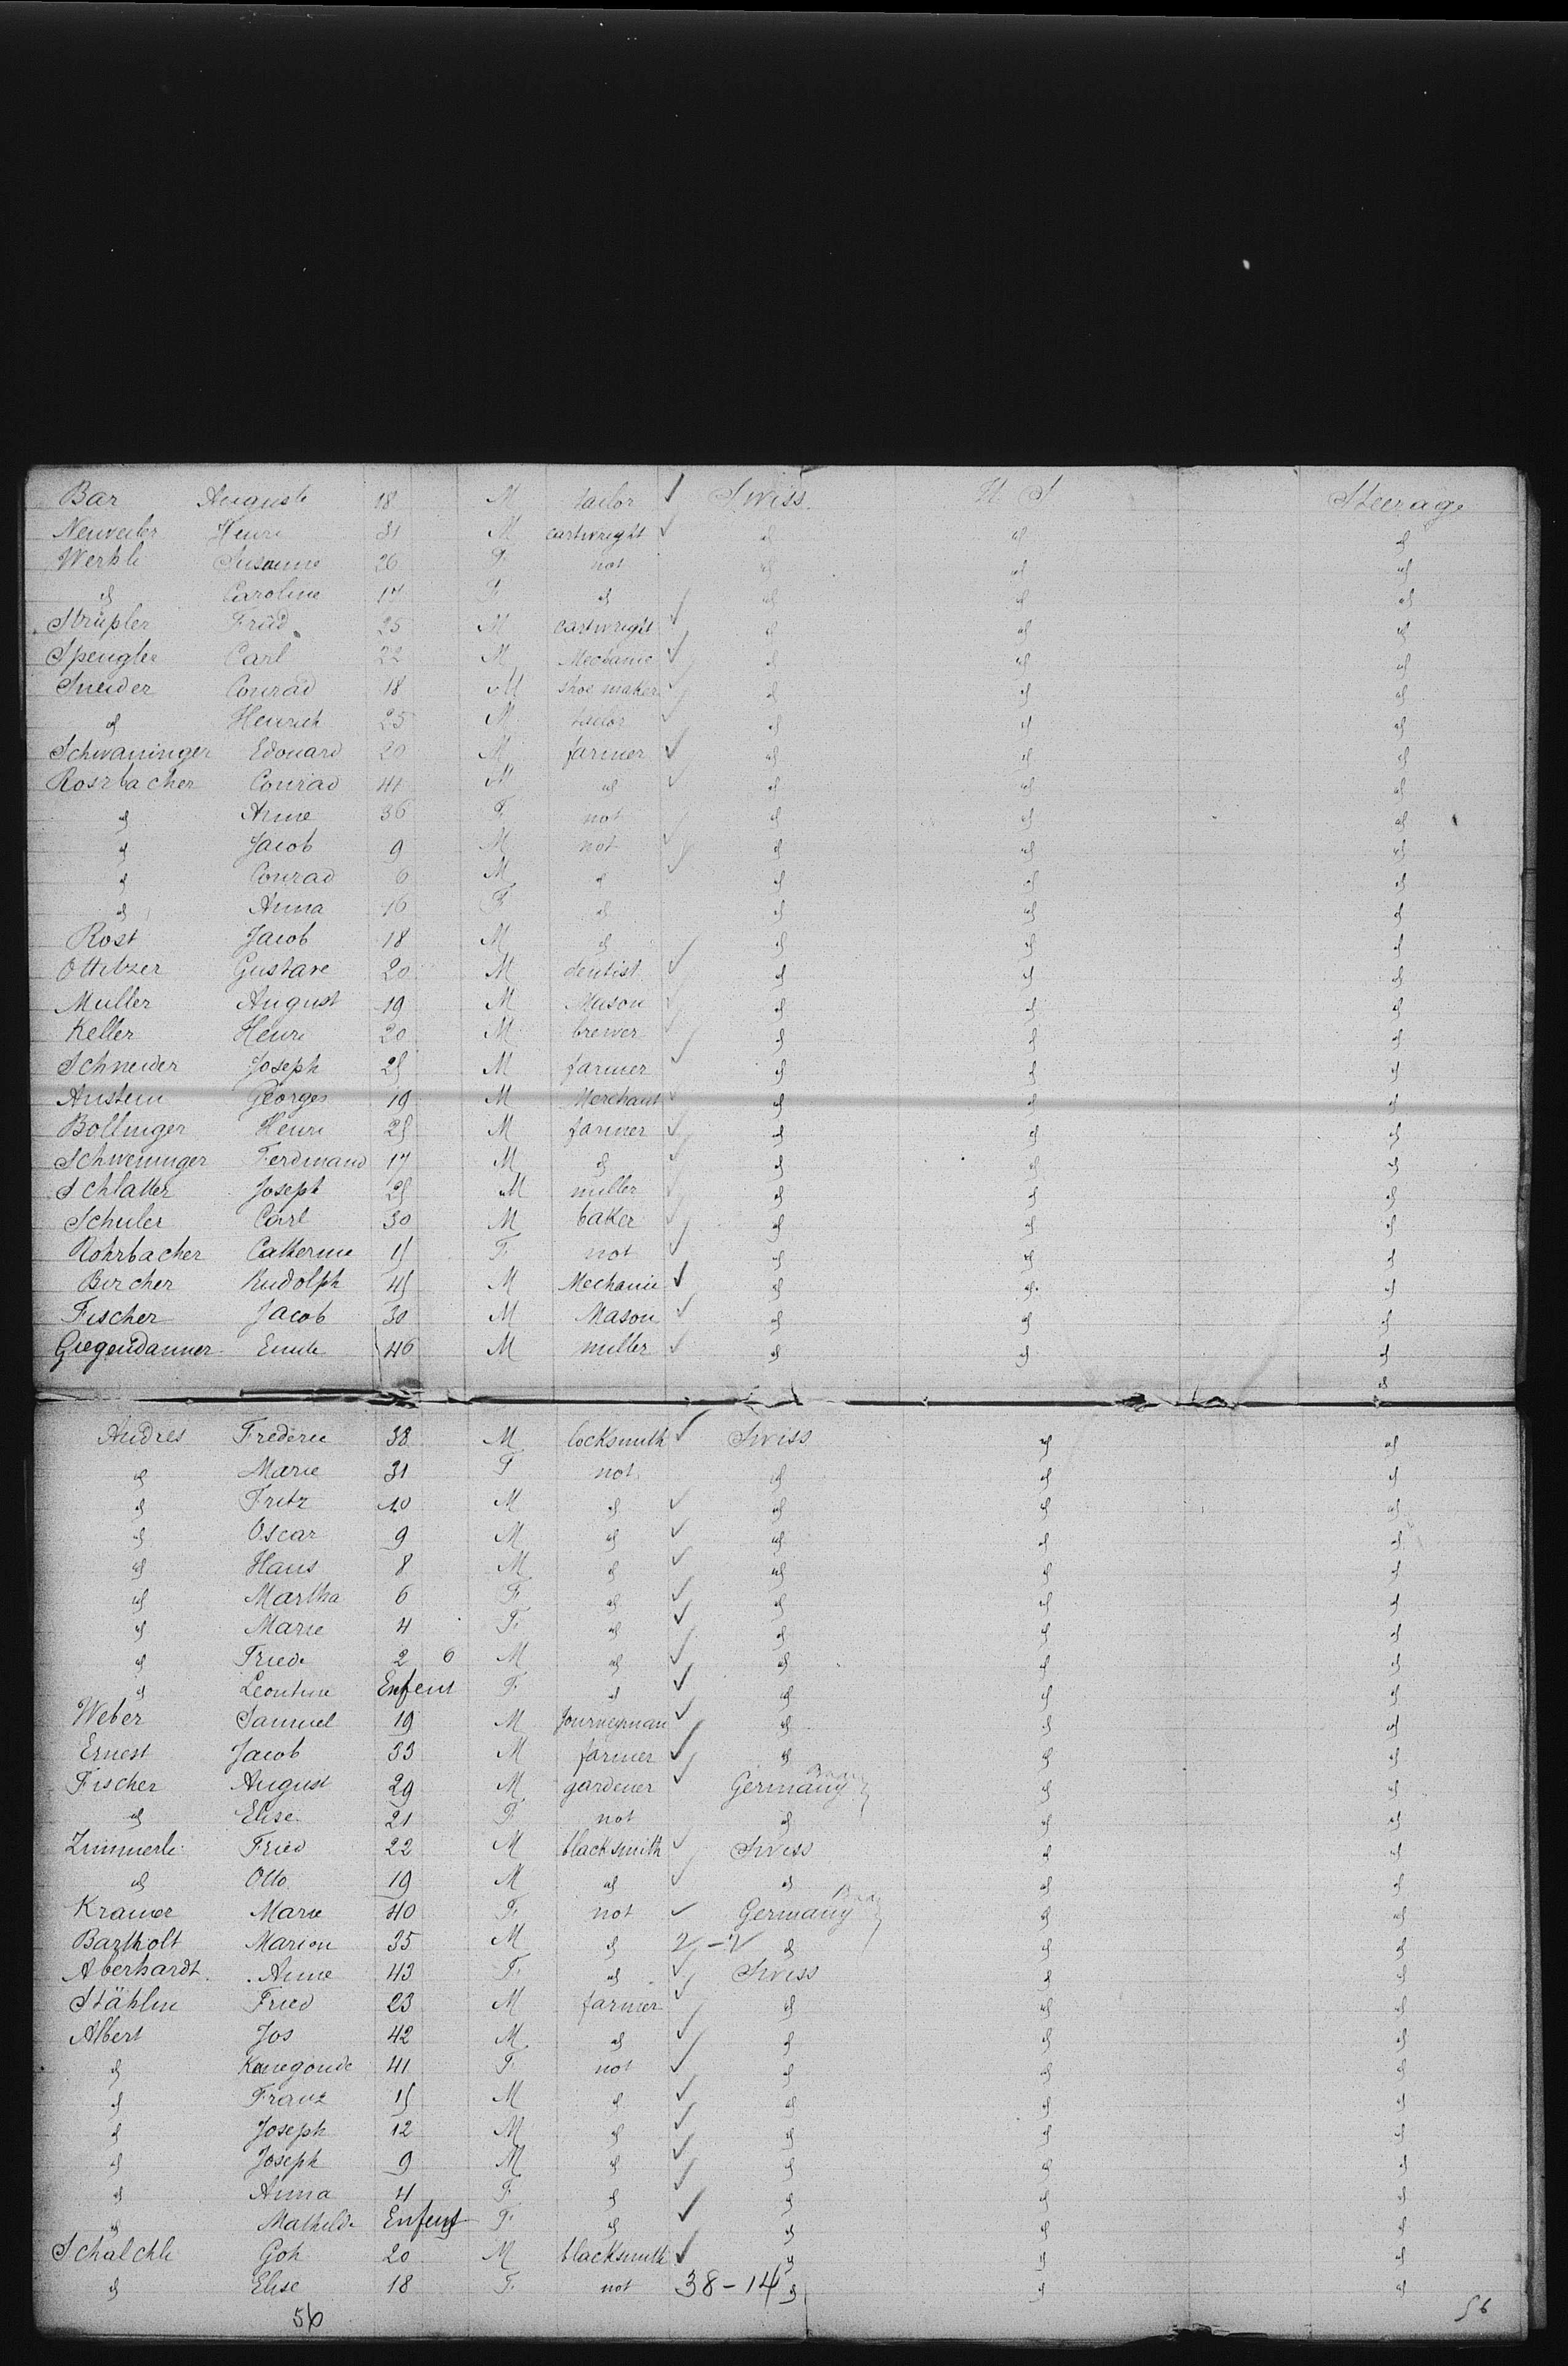 Bar Auguste 18 M tailor ✓ Swiss U S Steerage
Neuweiler Henri 31 M cartwright ✓ " " "
Werkli Susanne 26 F not " " "
" Caroline 17 F " " " "
Strupler Fried 25 M cartwright ✓ " " "
Spengler Carl 22 M Mechanic ✓ " " "
Sneider Conrad 18 M shoe maker ✓ " " "
" Henrich 25 M tailor ✓ " " "
Schwaninger Edouard 20 M farmer ✓ " " "
Rosrbacher Conrad 41 M " ✓ " " "
" Anne 36 F not " " "
" Jacob 9 M not ✓ " " "
" Conrad 6 M " ✓ " " "
" Anna 16 F " " " "
Rost Jacob 18 M " ✓ " " "
Gustave 20 M dentist ✓ " " "
Muller August 19 M Mason ✓ " " "
Keller Henri 20 M brewer ✓ " " "
Schneider Joseph 25 M farmer ✓ " " "
Georges 19 M Merchant ✓ " " "
Bollinger Henri 25 M farmer ✓ " " "
Schweninger Ferdinand 17 M " ✓ " " "
Schlatter Joseph 25 M miller ✓ " " "
Schuler Carl 30 M baker ✓ " " "
Rohrbacher Catherine 15 F not ✓ " " "
Bircher Rudolph 45 M Mechanic ✓ " " "
Fischer Jacob 30 M Mason ✓ " " "
Giegendanner Emile 46 M miller ✓ " " "
"
Andres Frederic 38 M locksmith ✓ Swiss " "
" Marie 31 F not " " "
" Fritz 10 M " ✓ " " "
" Oscar 9 M " ✓ " " "
" Hans 8 M " ✓ " " "
" Martha 6 F " ✓ " " "
" Marie 4 F " ✓ " " "
" Friede 2 6 M " ✓ " " "
" Leontine Enfent F " ✓ " " "
Weber Samuel 19 M Journeyman ✓ " " "
Ernest Jacob 33 M farmer ✓ " " "
Fischer August 29 M gardener ✓ Germany " "
" Elise 21 F not " " "
Zimmerli Fried 22 M blacksmith ✓ Swiss " "
" Otto 19 M " ✓ " " "
Kramer Marie 40 F not ✓ Germany " "
Bartholt Marion 35 M " 2-2 " " "
Aberhardt Anne 43 F " ✓ Swiss " "
Stählin Fried 23 M farmer ✓ " " "
Albert Jos 42 M " ✓ " " "
" Kunegonde 41 F not ✓ " " "
" Franz 15 M " ✓ " " "
" Joseph 12 M " ✓ " " "
" Joseph 9 M " ✓ " " "
" Anna 4 F " ✓ " " "
" Mathilde Enfent F " ✓ " " "
Schalchli Goh 20 M blacksmith ✓ " " "
" Elise 18 F not 38-14 " " "
56 56